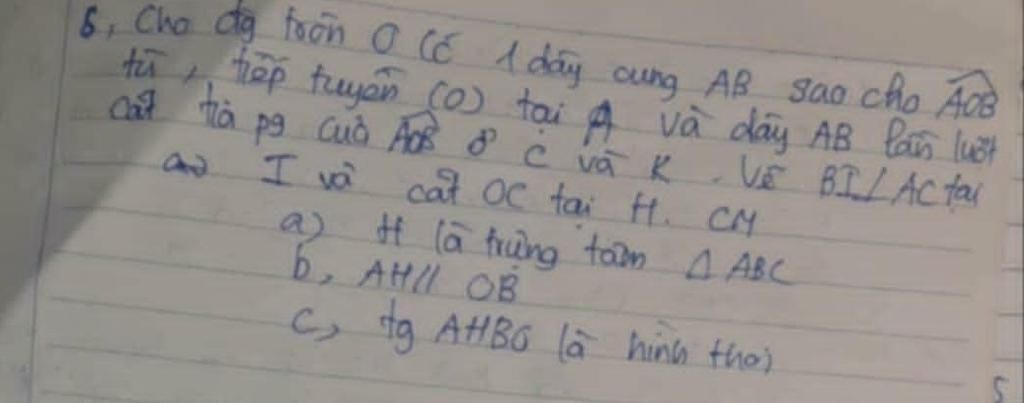 6, Cho đg tròn O Có 1 dây cung AB sao cho AOB
tù, tiếp tuyến (O) tại A và dây AB lần lượt
cắt tia pg của AOB ở C và K. Vẽ BI⊥AC tại
I và cắt OC tại H. CM
a) H là trung tâm Δ ABC
b, AH// OB
c, tg AHBO là hình thoi
5